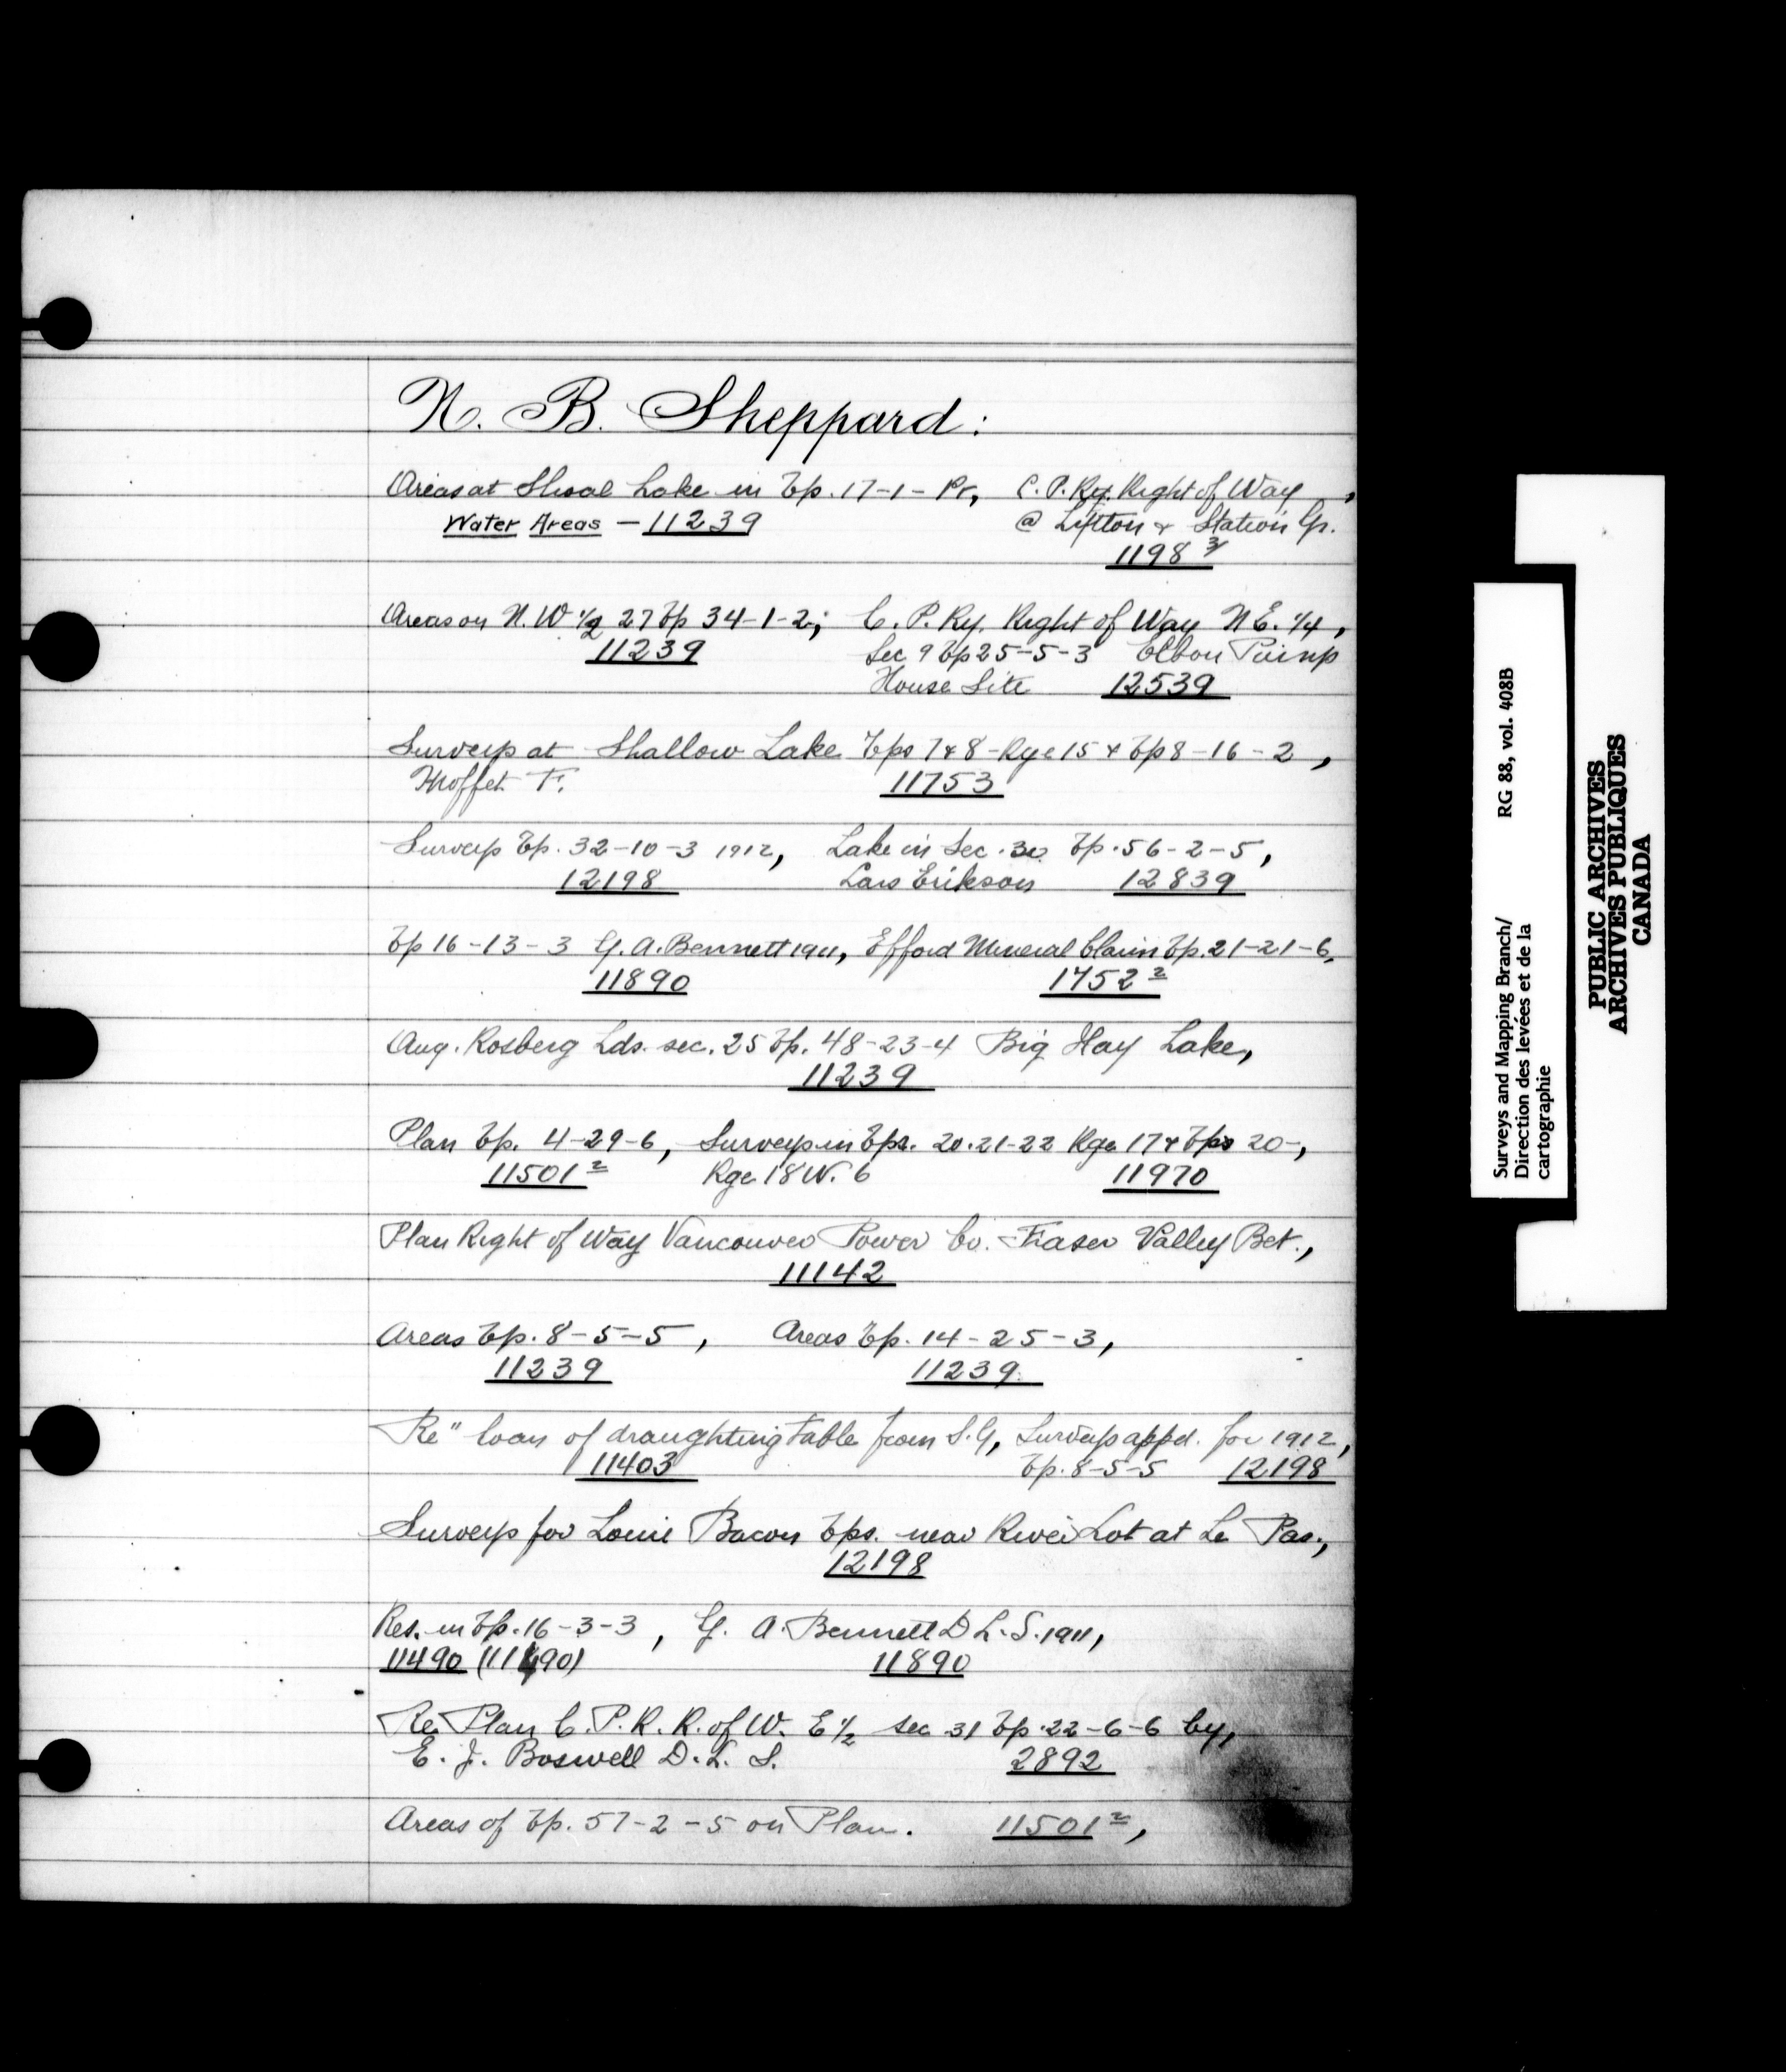 N. B. Sheppard:
Areas at Shoal Lake in Tp. 17-1-Pr, C. P. Ry. Right of Way,
Water Areas - 11239 @ Lytton & Station Gr.
1198 3/
Areas on N. W 1/2 27 Tp 34-1-2; C. P. Ry. Right of Way N E. 1/4,
11239 Sec 9 Tp 25-5-3 Elbow Pump
House Site 12539
Surveys at Shallow Lake Tps 7 & 8 - Rge 15 & Tp 8-16-2,
Moffet F. 11753
Surveys Tp. 32-10-3 1912, Lake in Sec. 30 Tp. 56-2-5,
12198 Lars Erikson 12839
Tp 16-13-3 G. A. Bennett 1911, Efford Mineral Claim Tp. 21-21-6,
11890 1752 2
Aug. Rosberg Lds. sec. 25 Tp. 48-23-4 Big Hay Lake,
11239
Plan Tp. 4-29-6, Surveys in Tps. 20-21-22 Rge 17 & Tps 20-,
11501 2 Rge 18 W. 6 11970
Plan Right of Way Vancouver Power Co. Fraser Valley Bet.,
11142
Areas Tp. 8-5-5, Areas Tp. 14-25-3,
11239 11239.
Re" loan of draughting table from S. G, Surveys appd. for 1912,
11403 Tp. 8-5-5 12198
Surveys for Louie Bacon Tps. near River Lot at Le Pas.,
12198
Res. in Tp. 16-3-3, G. A. Bennett D L. S. 1911,
11490 (11490) 11890
Re Plan C. P. R. R. of W. E 1/2 sec 31 Tp. 22-6-6 by,
E. J. Boswell D. L. S. 2892
Areas of Tp. 57-2-5 on Plan. 11501 2,
Surveys and Mapping Branch/ RG 88, vol. 408B
Direction des levées et de la
cartographie
PUBLIC ARCHIVES
ARCHIVES PUBLIQUES
CANADA